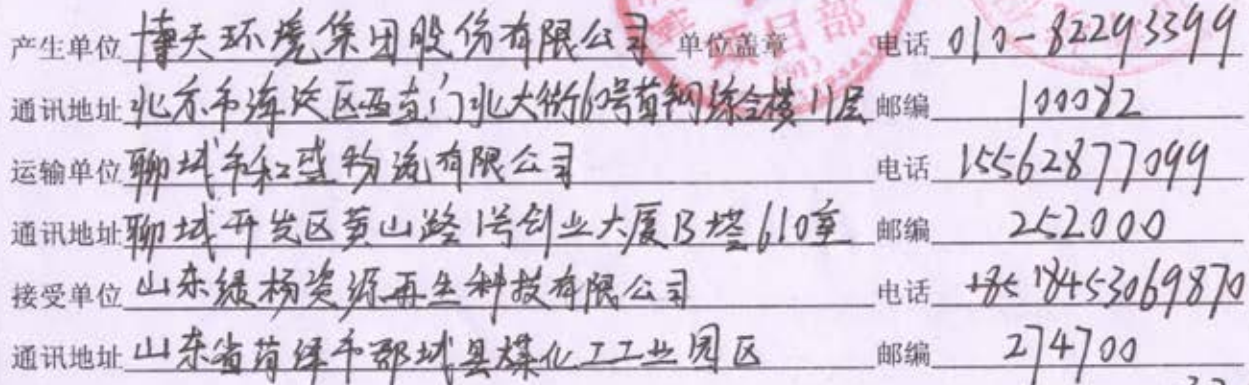 产生单位 博天环境集团股份有限公司 单位盖章 电话 010-82293399
通讯地址 北京市海淀区西直门北大街60号首钢综合楼11层 邮编 100082
运输单位 聊城市和盛物流有限公司 电话 15562877099
通讯地址 聊城开发区黄山路1号创业大厦B塔610室 邮编 252000
接受单位 山东绿杨资源再生科技有限公司 电话 18453069870
通讯地址 山东省菏泽市郓城县煤化工工业园区 邮编 274700
项目部